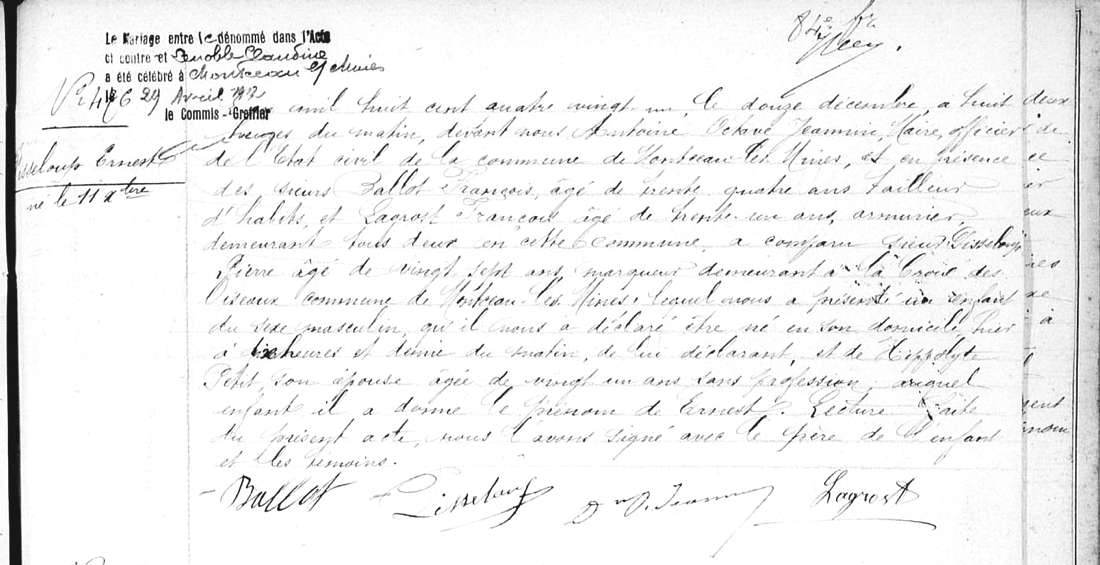 84e
Le Mariage entre le dénommé dans l'Acte
ci contre et Benoble Claudine
a été célébré à Montceau les Mines
le 29 Avril
le Commis-Greffier
No 476
Ernest
né le 11 Xbre
mil huit cent quatre vingt un, le douze décembre, à huit
heures du matin, devant nous Antoine Octave Jeannin, Maire, officier
de l'Etat civil de la commune de Montceau-les-Mines, et en présence
des sieurs Ballot François, âgé de trente quatre ans tailleur
d'habits, et Lagrost François âgé de trente un ans, armurier,
demeurant tous deux en cette commune, a comparu sieur Disseloup
Pierre âgé de vingt sept ans, marqueur demeurant à la Croix des
Oiseaux commune de Montceau-les-Mines, lequel nous a présenté un enfant
du sexe masculin, qu'il nous a déclaré être né en son domicile hier
à heures et demie du matin, de lui déclarant, et de Hippolyte
Petit, son épouse âgée de vingt un ans sans profession, auquel
enfant il a donné le prénom de Ernest. Lecture faite
du présent acte, nous l'avons signé avec le père de l'enfant
et les témoins.
Ballot Disseloup Jeannin Lagrost